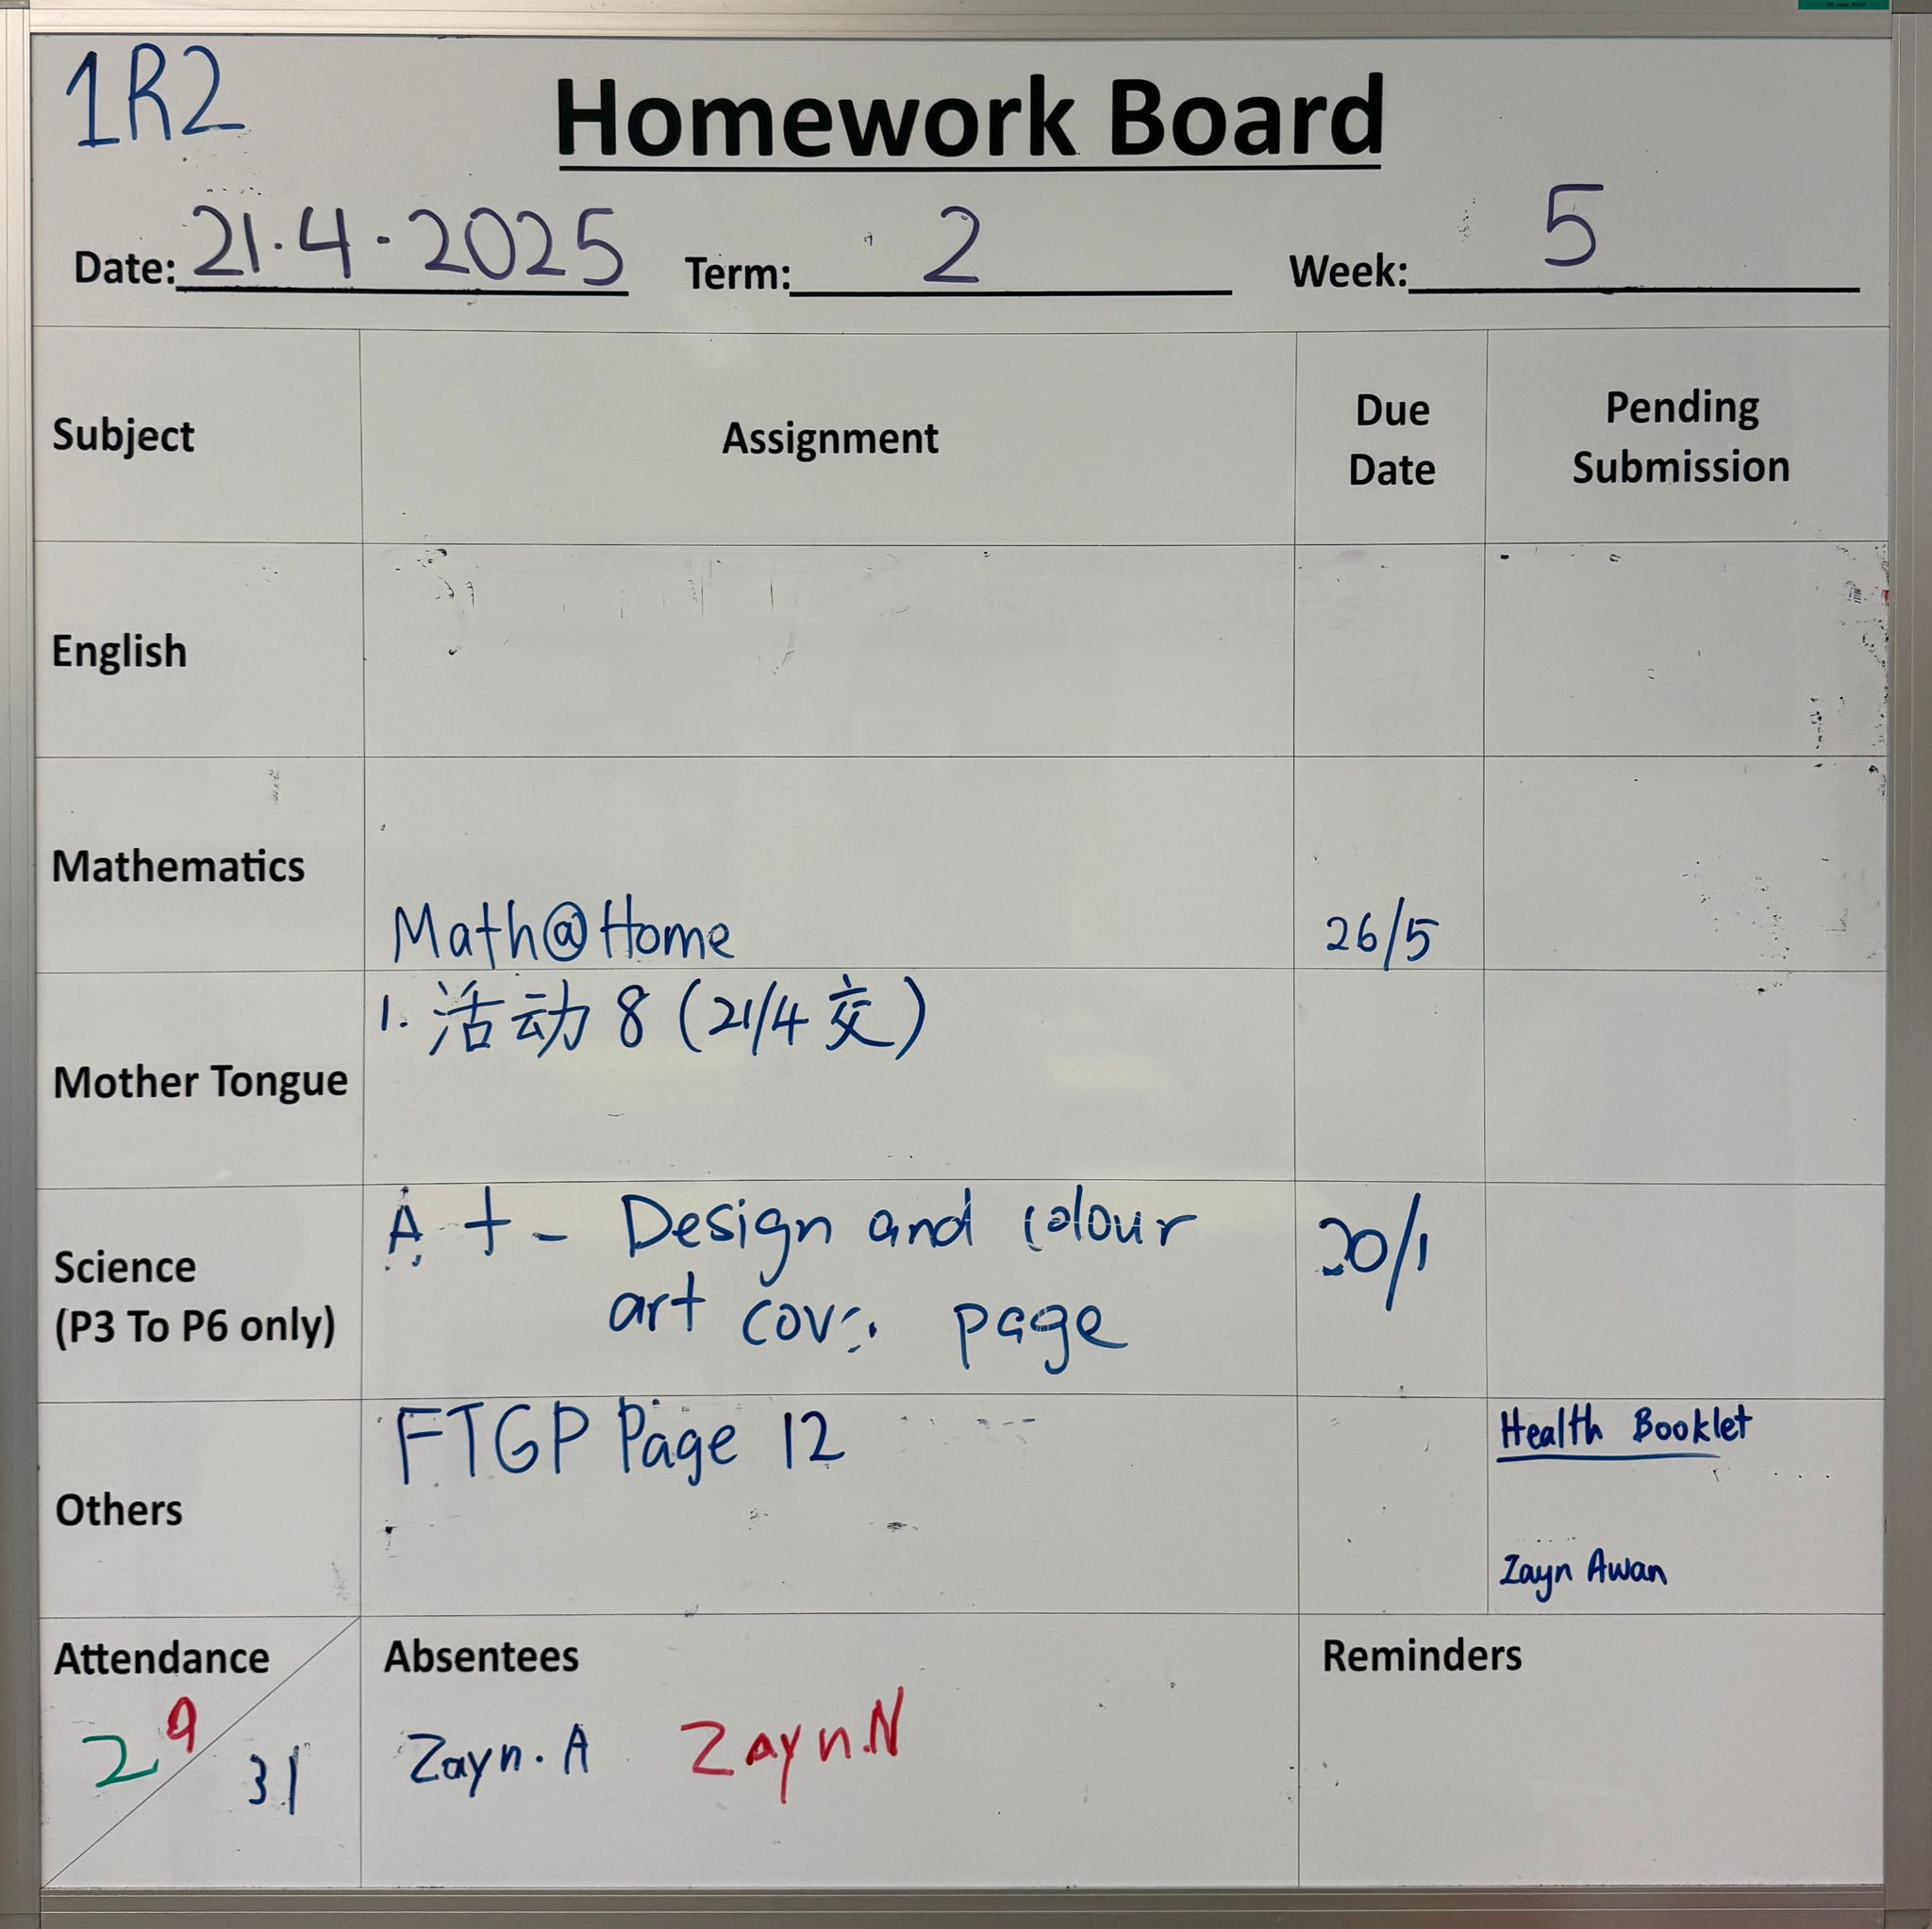 1R2
Homework Board
Date: 21.4.2025 Term: 2 Week: 5
Subject Assignment Due Date Pending Submission
English
Mathematics Math@Home 26/5
Mother Tongue 1. 活动 8 (21/4 交)
Science (P3 To P6 only) A t - Design and colour
art page
Others FTGP Page 12 Health Booklet
Zayn Awan
Attendance Absentees Reminders
29 31 Zayn. A Zayn.N